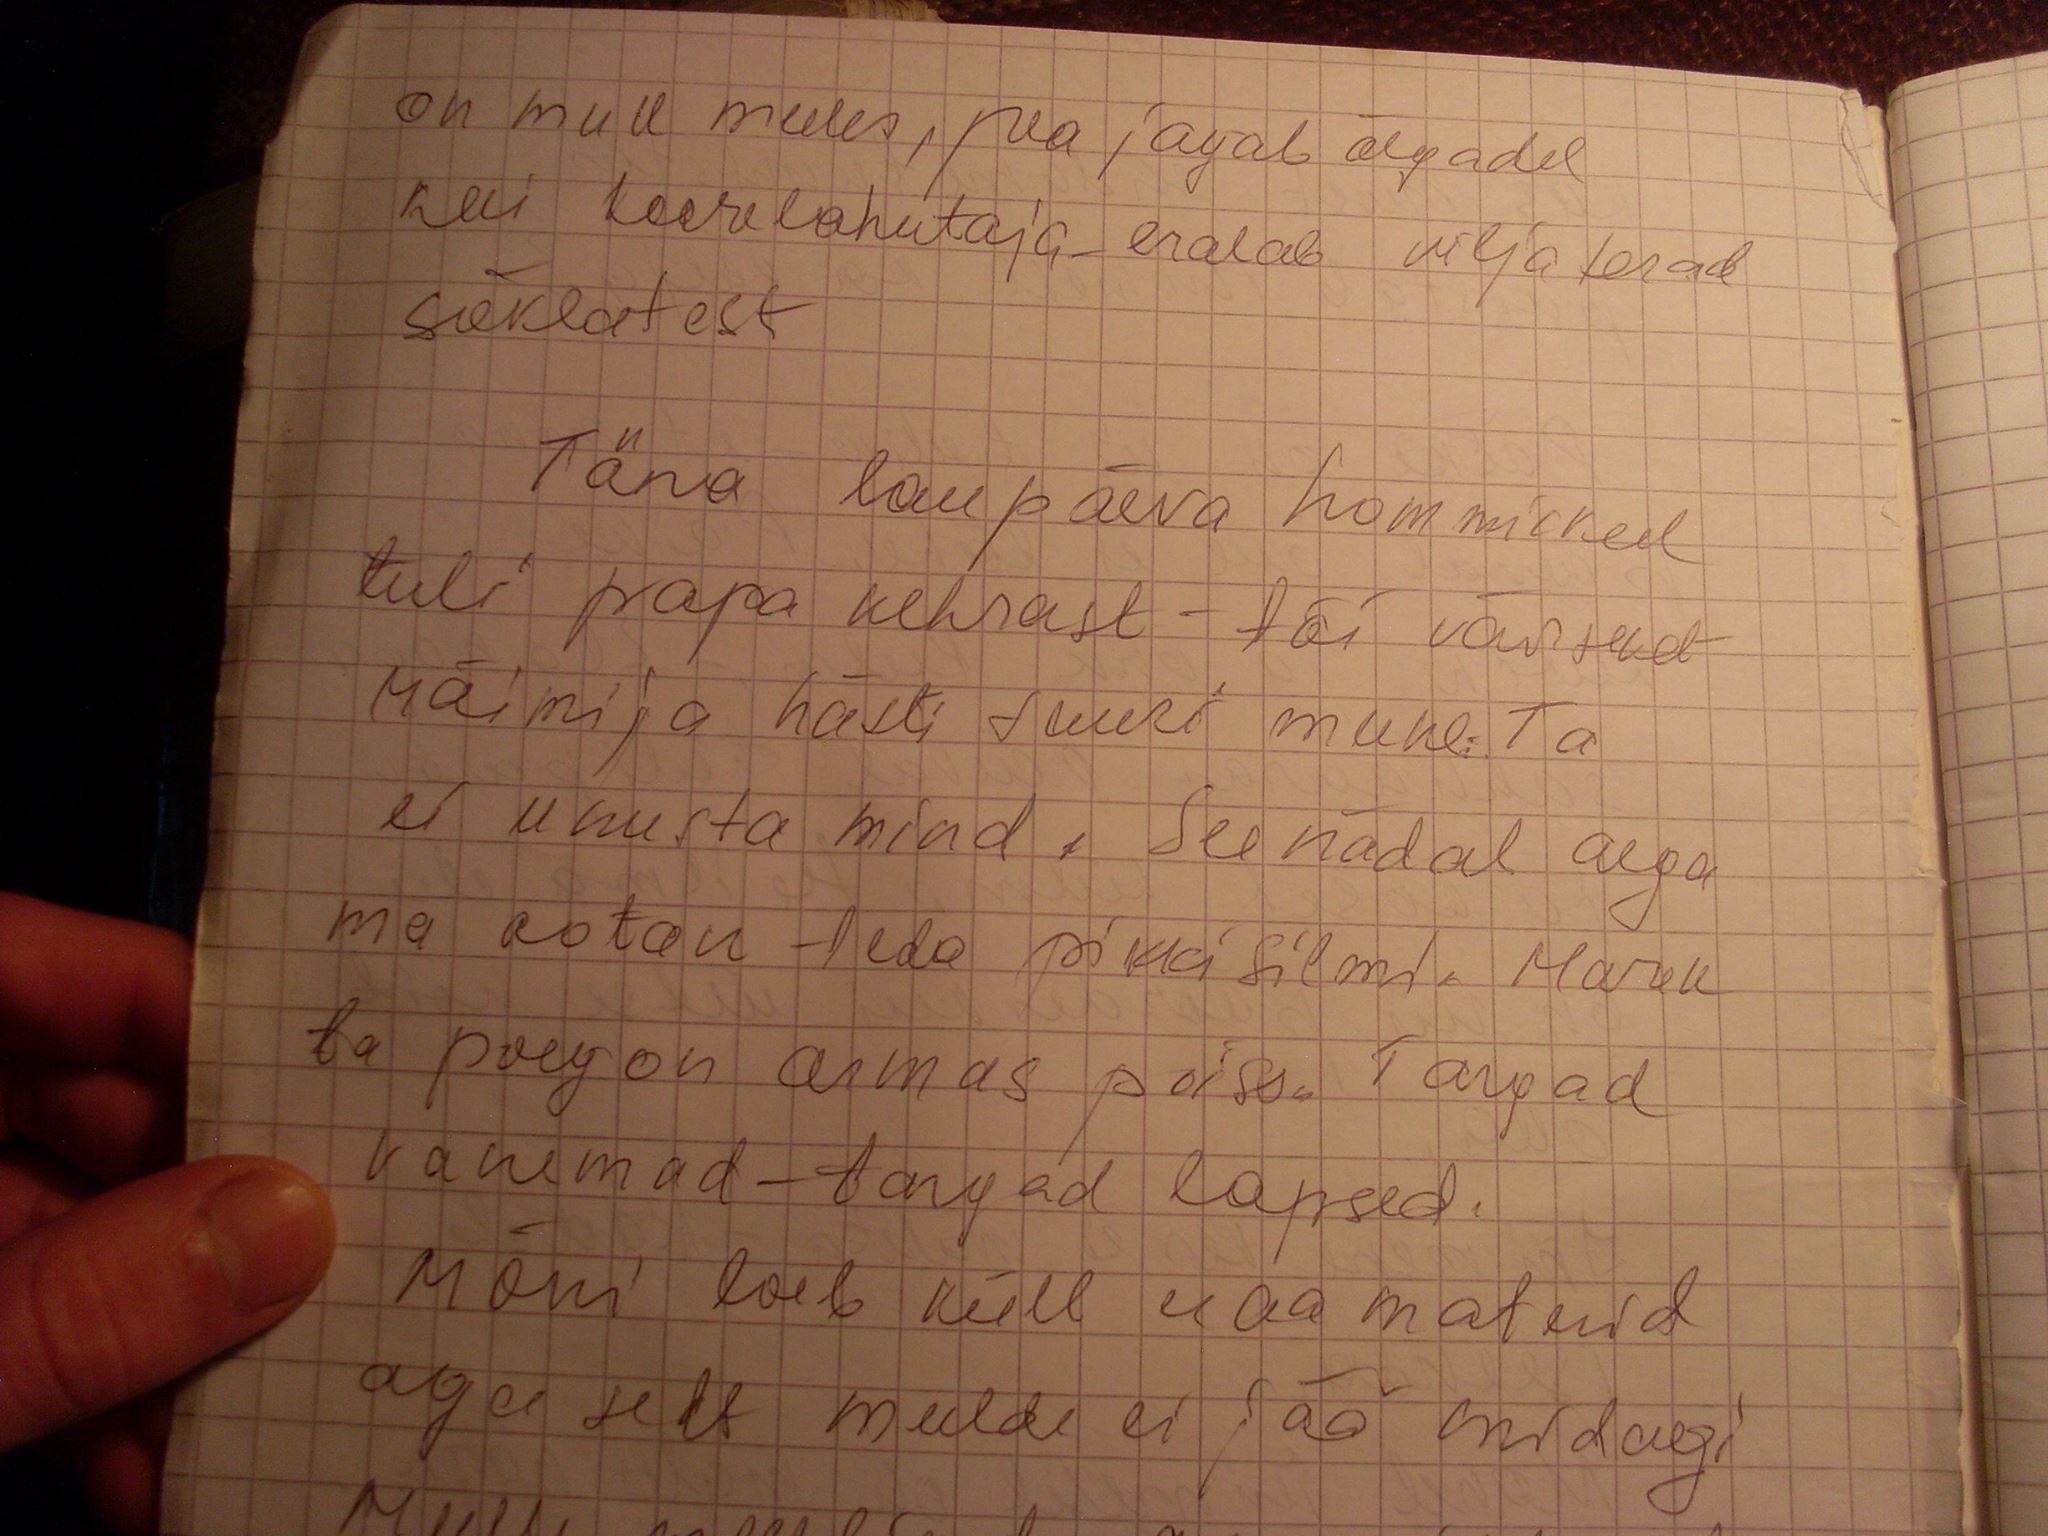 on mul meeles, pea jagab õlgadel
kui koorelahutaja - eralab viljaterad
sõklatest
Täna laupäeva hommikul
tuli papa Kehrast - tõi värsket
räimi ja hästi suuri mune. Ta
ei unusta mind. See nädal aega
ma ootan teda pikki silmi. Marek
ta poeg on armas poiss. Targad
vanemad - targad lapsed.
Mõni loeb küll raamatuid
aga sealt meelde ei jää midagi